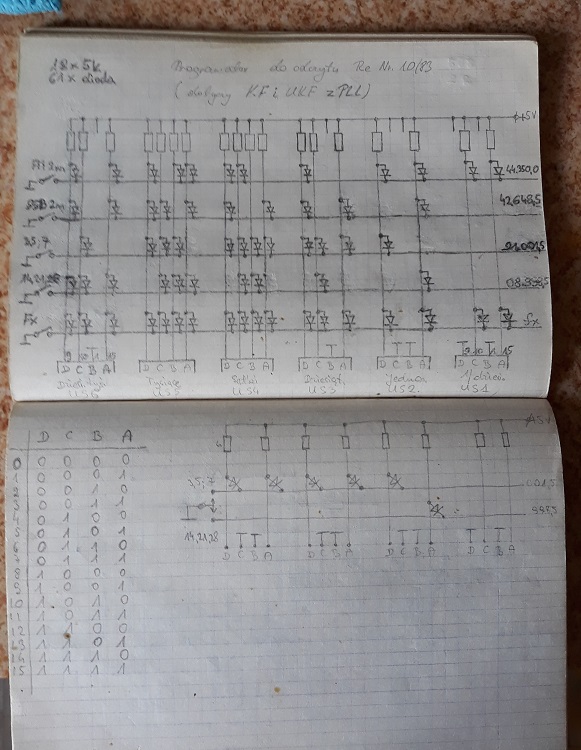 18 x 5k
61 x dioda
Programator do odczytu Re Nr. 10/83
(dotyczy KF i UKF z PLL)
+5V
2m 44.350,0
2m 42.648,5
3,5; 7 01.001,5
fx
D C B A D C B A D C B A D C B A D C B A D C B A
Tysiące Setki Dziesiąt. Jednos.
US6 US5 US4 US3 US2 US1
D C B A
0 0 0 0 0
1 0 0 0 1
2 0 0 1 0
3 0 0 1 1
4 0 1 0 0
5 0 1 0 1
6 0 1 1 0
7 0 1 1 1
8 1 0 0 0
9 1 0 0 1
10 1 0 1 0
11 1 0 1 1
12 1 1 0 0
13 1 1 0 1
14 1 1 1 0
15 1 1 1 1
+5V
3,5; 7 001,5
998,5
14,21,28
D C B A D C B A D C B A D C B A